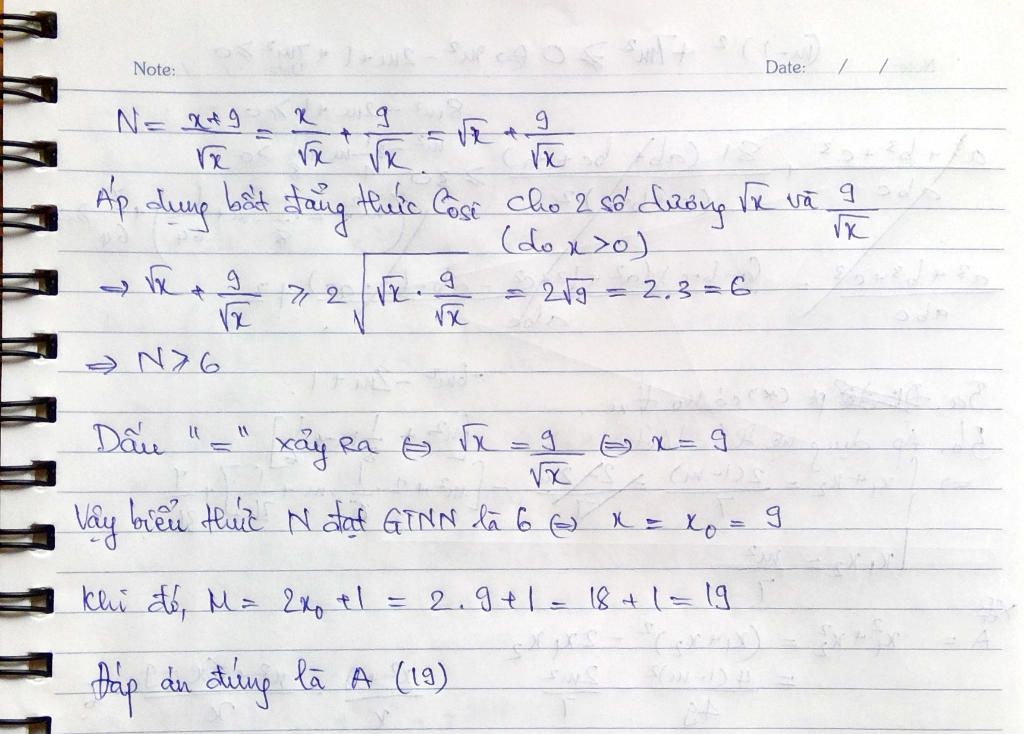 Note:
Date: / /
N = \frac{x+9}{\sqrt{x}} = \frac{x}{\sqrt{x}} + \frac{9}{\sqrt{x}} = \sqrt{x} + \frac{9}{\sqrt{x}}
Áp dụng bất đẳng thức Côsi cho 2 số dương \sqrt{x} và \frac{9}{\sqrt{x}}
(do x > 0)
⇒ \sqrt{x} + \frac{9}{\sqrt{x}} ⩾ 2\sqrt{\sqrt{x} . \frac{9}{\sqrt{x}}} = 2\sqrt{9} = 2.3 = 6
⇒ N ⩾ 6
Dấu "=" xảy ra ⇔ \sqrt{x} = \frac{9}{\sqrt{x}} ⇔ x = 9
Vậy biểu thức N đạt GTNN là 6 ⇔ x = x₀ = 9
Khi đó, M = 2x₀ + 1 = 2 . 9 + 1 = 18 + 1 = 19
Đáp án đúng là A (19)